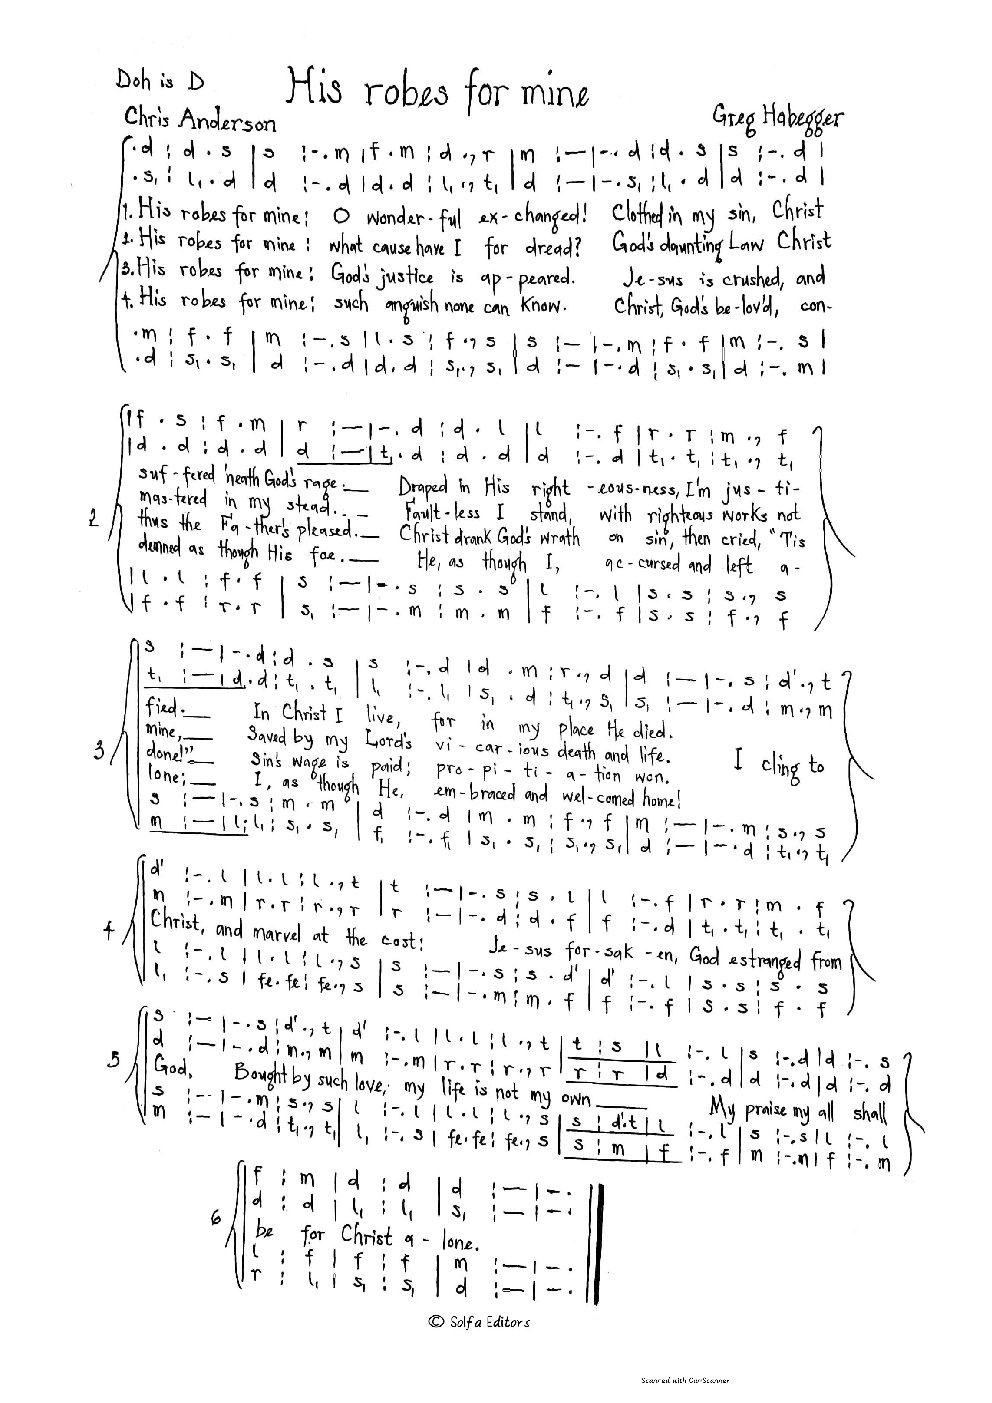 Doh is D
His robes for mine
Chris Anderson
Greg Habegger
.d : d . s | s :-. m | f . m : d ., r | m :— | -. d : d . s | s :-. d |
.s, : l, . d | d :-. d | d . d : l, ., t, | d :— | -. s, : l, . d | d :-. d |
1. His robes for mine; O wonder-ful ex-changed! Clothed in my sin, Christ
2. His robes for mine; what cause have I for dread? God's daunting Law Christ
3. His robes for mine; God's justice is ap-peared. Je-sus is crushed, and
4. His robes for mine; such anguish none can know. Christ, God's be-lov'd, con-
.m : f . f | m :-. s | l . s : f ., s | s :— | -. m : f . f | m :-. s |
.d : s, . s, | d :-. d | d . d : s, ., s, | d :— | -. d : s, . s, | d :-. m |
| f . s : f . m | r :— | -. d : d . l | l :-. f | r . r : m ., f
| d . d : d . d | d :— | t, . d : d . d | d :-. d | t, . t, : t, ., t,
suf-fered 'neath God's rage. — Draped in His right-eous-ness, I'm jus-ti-
2 mas-tered in my stead. . - Fault-less I stand, with righteous works not
thus the Fa-ther's pleased. — Christ drank God's wrath on sin, then cried, "'Tis
demned as though His foe. — He, as though I, ac-cursed and left a-
| l . l : f . f | s :— | -. s : s . s | l :-. l | s . s : s ., s
| f . f : r . r | s, :— | -. m : m . m | f :-. f | s . s : f ., f
s :— | -. d : d . s | s :-. d | d . m : r ., d | d :— | -. s : d' ., t
t, :— | d . d : t, . t, | l, :-. l, | s, . d : t, ., s, | s, :— | -. d : m ., m
fied. — In Christ I live, for in my place He died.
mine, — Saved by my Lord's vi-car-ious death and life.
3 done!" — Sin's wage is paid; pro-pi-ti-a-tion won. I cling to
lone; — I, as though He, em-braced and wel-comed home!
s :— | -. s : m . m | d :-. d | m . m : f ., f | m :— | -. m : s ., s
m :— | l, . l, : s, . s, | f, :-. f, | s, . s, : s, ., s, | d :— | -. d : t, ., t,
d' :-. l | l . l : l ., t | t :— | -. s : s . l | l :-. f | r . r : m . f
m :-. m | r . r : r ., r | r :— | -. d : d . f | f :-. d | t, . t, : t, . t,
4 Christ, and marvel at the cost: Je-sus for-sak-en, God estranged from
l :-. l | l . l : l ., s | s :— | -. s : s . d' | d' :-. l | s . s : s . s
l, :-. s | fe . fe : fe ., s | s :— | -. m : m . f | f :-. f | s . s : f . f
s :— | -. s : d' ., t | d' :-. l | l . l : l ., t | t : s | l :-. l | s :-. d | d :-. s
d :— | -. d : m ., m | m :-. m | r . r : r ., r | r : r | d :-. d | d :-. d | d :-. d
5 God, Bought by such love, my life is not my own — My praise my all shall
s :— | -. m : s ., s | l :-. l | l . l : l ., s | s : d'.t | l :-. l | s :-. s | l :-. l
m :— | -. d : t, ., t, | l, :-. s | fe . fe : fe ., s | s : m | f :-. f | m :-. m | f :-. m
f : m | d : d | d :— | -.
d : d | l, : l, | s, :— | -.
6 be for Christ a-lone.
l : f | f : f | m :— | -.
r : l, | s, : s, | d :— | -.
© Solfa Editors
Scanned with CamScanner